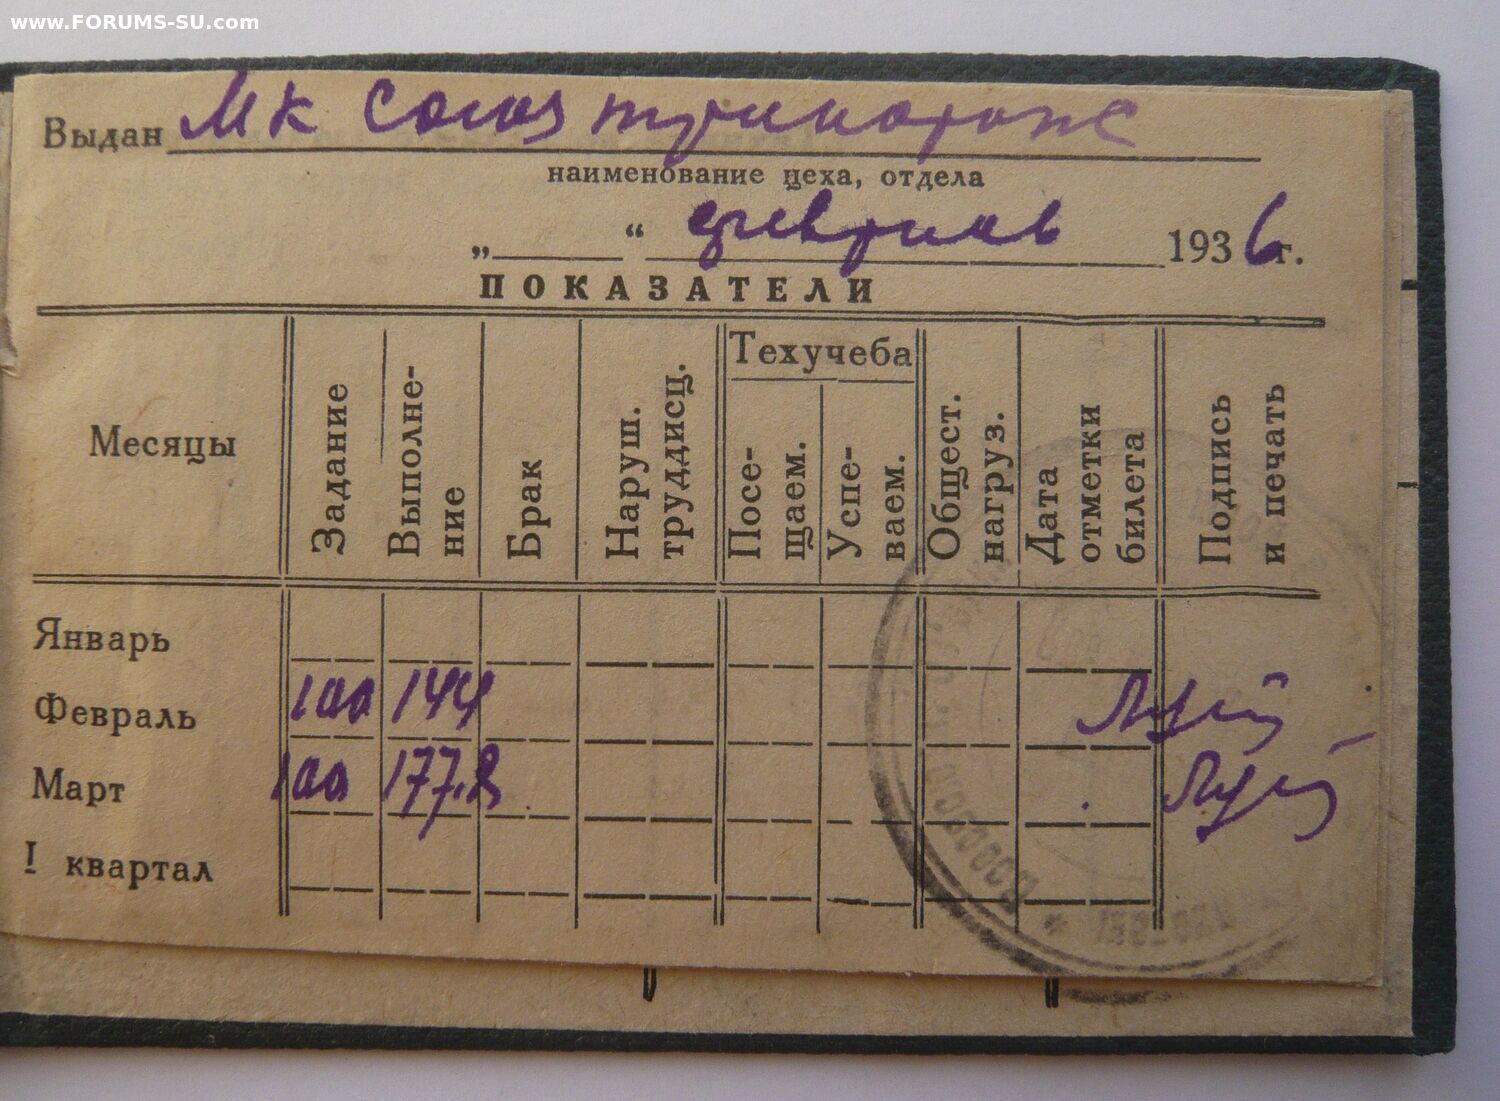 www.FORUMS-SU.com
Выдан МК Союз
наименование цеха, отдела
„ “ февраль 1936 г.
ПОКАЗАТЕЛИ
Месяцы Задание Выполне- ние Брак Наруш. труддисц. Техучеба Посе- щаем. Успе- ваем. Общест. нагруз. Дата отметки билета Подпись и печать
Январь
Февраль 100 144
Март 100 177.8
I квартал